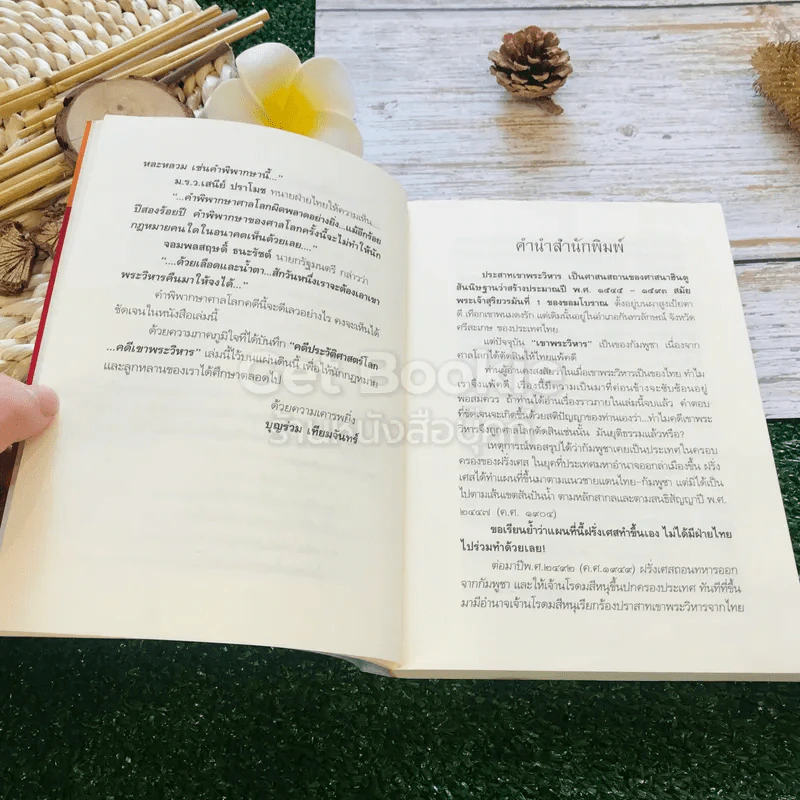 หละหลวม เช่นคำพิพากษานี้..."
ม.ร.ว.เสนีย์ ปราโมช ทนายฝ่ายไทยให้ความเห็น...
"...คำพิพากษาศาลโลกผิดพลาดอย่างยิ่ง...แม้อีกร้อย
ปีสองร้อยปี คำพิพากษาของศาลโลกครั้งนี้จะไม่ทำให้นัก
กฎหมายคนใดในอนาคตเห็นด้วยเลย...."
จอมพลสฤษดิ์ ธนะรัชต์ นายกรัฐมนตรี กล่าวว่า
"....ด้วยเลือดและน้ำตา...สักวันหนึ่งเราจะต้องเอาเขา
พระวิหารคืนมาให้จงได้..."
คำพิพากษาศาลโลกคดีนี้จะดีเลวอย่างไร คงจะเห็นได้
ชัดเจนในหนังสือเล่มนี้
ด้วยความภาคภูมิใจที่ได้บันทึก "คดีประวัติศาสตร์โลก
...คดีเขาพระวิหาร" เล่มนี้ไว้บนแผ่นดินนี้ เพื่อให้นักกฎหมาย
และลูกหลานของเราได้ศึกษาตลอดไป
ด้วยความเคารพยิ่ง
บุญร่วม เทียมจันทร์
คำนำสำนักพิมพ์
ประสาทเขาพระวิหาร เป็นศาสนสถานของศาสนาฮินดู
สันนิษฐานว่าสร้างประมาณปี พ.ศ. ๑๔๔๕ - ๑๔๙๓ สมัย
พระเจ้าสุริยวรมันที่ 1 ของขอมโบราณ ตั้งอยู่บนผาสูงเปียตา
ดี เทือกเขาพนมดงรัก แต่เดิมนั้นอยู่ในอำเภอกันทรลักษณ์ จังหวัด
ศรีสะเกษ ของประเทศไทย
แต่ปัจจุบัน "เขาพระวิหาร" เป็นของกัมพูชา เนื่องจาก
ศาลโลกได้ตัดสินให้ไทยแพ้คดี
ท่านผู้อ่านคงสงสัยว่าในเมื่อเขาพระวิหารเป็นของไทย ทำไม
เราจึงแพ้คดี เรื่องนี้มีความเป็นมาที่ค่อนข้างจะซับซ้อนอยู่
พอสมควร ถ้าท่านได้อ่านเรื่องราวภายในเล่มนี้จบแล้ว คำตอบ
ที่ชัดเจนจะเกิดขึ้นด้วยสติปัญญาของท่านเองว่า...ทำไมคดีเขาพระ
วิหารจึงถูกศาลโลกตัดสินเช่นนั้น มันยุติธรรมแล้วหรือ?
เหตุการณ์พอสรุปได้ว่ากัมพูชาเคยเป็นประเทศในครอบ
ครองของฝรั่งเศส ในยุคที่ประเทศมหาอำนาจออกล่าเมืองขึ้น ฝรั่ง
เศสได้ทำแผนที่ขึ้นมาตามแนวชายแดนไทย-กัมพูชา แต่มิได้เป็น
ไปตามเส้นเขตสันปันน้ำ ตามหลักสากลและตามสนธิสัญญาปี พ.ศ.
๒๔๔๗ (ค.ศ. ๑๙๐๔)
ขอเรียนย้ำว่าแผนที่นี้ฝรั่งเศสทำขึ้นเอง ไม่ได้มีฝ่ายไทย
ไปร่วมทำด้วยเลย!
ต่อมาปีพ.ศ.๒๔๙๒ (ค.ศ.๑๙๔๙) ฝรั่งเศสถอนทหารออก
จากกัมพูชา และให้เจ้านโรดมสีหนุขึ้นปกครองประเทศ ทันทีที่ขึ้น
มามีอำนาจเจ้านโรดมสีหนุเรียกร้องปราสาทเขาพระวิหารจากไทย